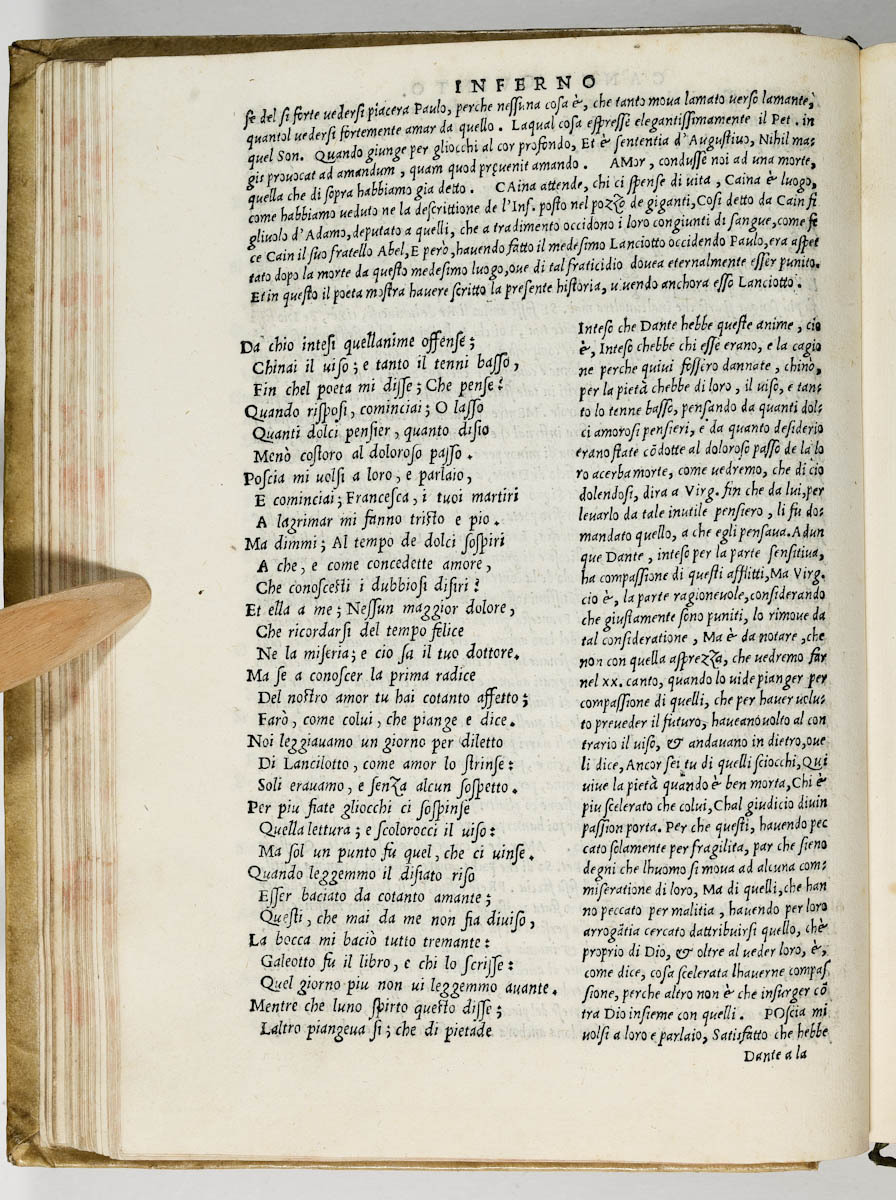 INFERNO
se del si forte uedersi piacera Paulo, perche nessuna cosa è, che tanto moua lamato uerso lamante,
quantol uedersi fortemente amar da quello. Laqual cosa espresse elegantissimamente il Pet. in
quel Son. Quando giunge per gliocchi al cor profondo, Et è sententia d'Augustiuo, Nihil ma-
gis prouocat ad amandum, quam quod pręuenit amando. AMor, condusse noi ad una morte,
quella che di sopra habbiamo gia detto. CAina attende, chi ci spense di uita, Caina è luogo,
come habbiamo ueduto ne la descrittione de l'Inf. posto nel pozzo de giganti, Cosi detto da Cain fi
gliuolo d'Adamo, deputato a quelli, che a tradimento occidono i loro congiunti di sangue, come fe
ce Cain il suo fratello Abel, E però, hauendo fatto il medesimo Lanciotto occidendo Paulo, era aspet
tato dopo la morte da questo medesimo luogo, oue di tal fraticidio douea eternalmente esser punito.
Et in questo il poeta mostra hauere scritto la presente historia, uiuendo anchora esso Lanciotto.
Da chio intesi quellanime offense;
Chinai il uiso; e tanto il tenni basso,
Fin chel poeta mi disse; Che pense?
Quando risposi, cominciai; O lasso
Quanti dolci pensier, quanto disio
Menò costoro al doloroso passo.
Poscia mi uolsi a loro, e parlaio,
E cominciai; Francesca, i tuoi martiri
A lagrimar mi fanno tristo e pio.
Ma dimmi; Al tempo de dolci sospiri
A che, e come concedette amore,
Che conoscesti i dubbiosi disiri?
Et ella a me; Nessun maggior dolore,
Che ricordarsi del tempo felice
Ne la miseria; e cio sa il tuo dottore.
Ma se a conoscer la prima radice
Del nostro amor tu hai cotanto affetto;
Farò, come colui, che piange e dice.
Noi leggiauamo un giorno per diletto
Di Lancilotto, come amor lo strinse:
Soli erauamo, e senza alcun sospetto.
Per piu fiate gliocchi ci sospinse
Quella lettura; e scolorocci il uiso:
Ma sol un punto fu quel, che ci uinse.
Quando leggemmo il disiato riso
Esser baciato da cotanto amante;
Questi, che mai da me non fia diuiso,
La bocca mi baciò tutto tremante:
Galeotto fu il libro, e chi lo scrisse:
Quel giorno piu non ui leggemmo auante.
Mentre che luno spirto questo disse;
Laltro piangeua si; che di pietade
Inteso che Dante hebbe queste anime, cio
è, Inteso chebbe chi esse erano, e la cagio
ne perche quiui fossero dannate, chinò,
per la pietà chebbe di loro, il uiso, e tan-
to lo tenne basso, pensando da quanti dol-
ci amorosi pensieri, e da quanto desiderio
erano state cõdotte al doloroso passo de la lo
ro acerba morte, come uedremo, che di cio
dolendosi, dira a Virg. fin che da lui, per
leuarlo da tale inutile pensiero, li fu do-
mandato quello, a che egli pensaua. Adun
que Dante, inteso per la parte sensitiua,
ha compassione di questi afflitti, Ma Virg.
cio è, la parte ragioneuole, considerando
che giustamente sono puniti, lo rimoue da
tal consideratione, Ma è da notare, che
non con quella asprezza, che uedremo far
nel xx. canto, quando lo uide pianger per
compassione di quelli, che per hauer uolu-
to preueder il futuro, haueano uolto al con
trario il uiso, & andauano in dietro, oue
li dice, Ancor sei tu di quelli sciocchi, Qui
uiue la pietà quando è ben morta, Chi è
piu scelerato che colui, Chal giudicio diuin
passion porta. Per che questi, hauendo pec
cato solamente per fragilita, par che sieno
degni che lhuomo si moua ad alcuna com-
miseratione di loro, Ma di quelli, che han
no peccato per malitia, hauendo per loro
arrogãtia cercato dattribuirsi quello, chè
proprio di Dio, & oltre al ueder loro, è,
come dice, cosa scelerata lhauerne compas
sione, perche altro non è che insurger cõ
tra Dio insieme con quelli. POscia mi
uolsi a loro e parlaio, Satisfatto che hebbe
Dante a la